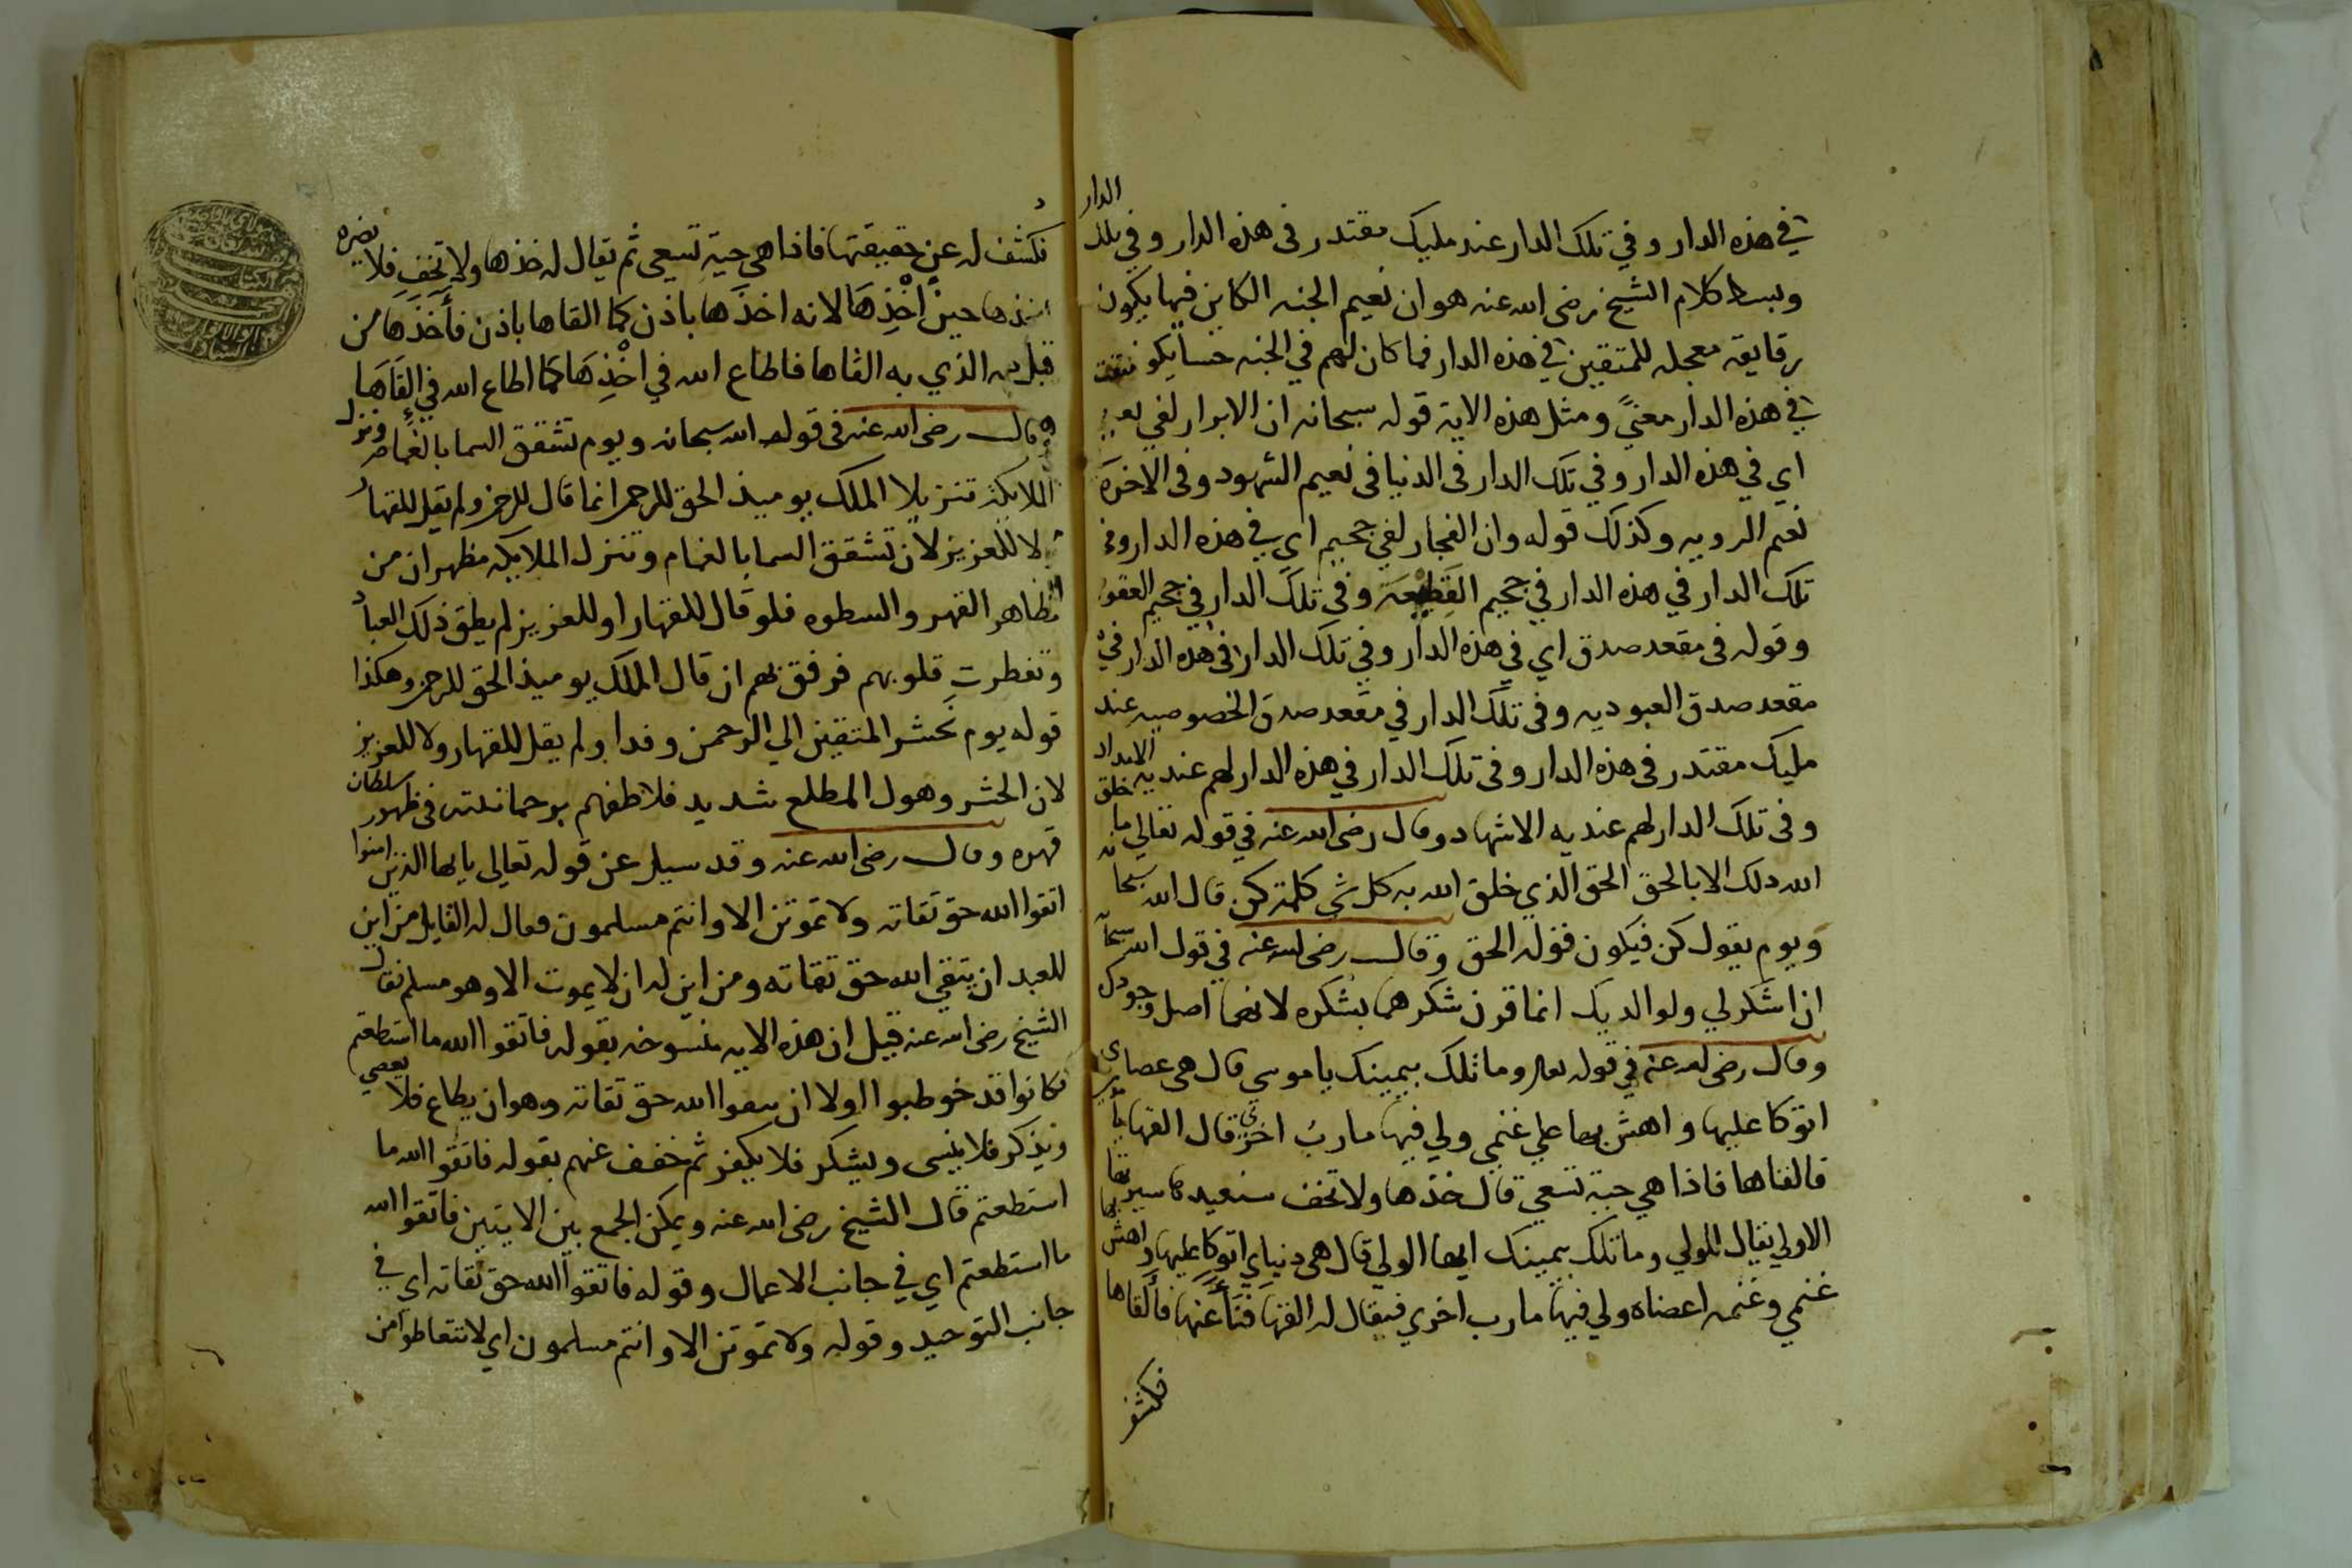 في هذه الدار وفي تلك الدار عند مليك مقتدر في هذه الدار وفي تلك الدار
وبسط كلام الشيخ رضى الله عنه هو ان نعيم الجنه الكاين فيها يكون
رقايقه معجله للمتقين في هذه الدار فما كان لهم في الجنه حسا يكون
في هذه الدار معنىً ومثل هذه الاية قوله سبحانه ان الابرار لفي نعيم
اي في هذه الدار وفي تلك الدار فى الدنيا فى نعيم الشهود وفى الاخرة
نعيم الرويه وكذلك قوله وان الفجار لفي جحيم اي في هذه الدار وفي
تلك الدار في هذه الدار في جحيم القَطِيعَة وفي تلك الدار في جحيم العقوبه
وقوله فى مقعد صدق اي في هذه الدار وفي تلك الدار فى هذه الدار في
مقعد صدق العبوديه وفى تلك الدار في مقعد صدق الخصوصيه عند
مليك مقتدر فى هذه الدار وفى تلك الدار في هذه الدار لهم عنديه الامداد
وفى تلك الدار لهم عنديه الاشهاد وقال رضى الله عنه في قوله تعالى ما خلق
الله ذلك الا بالحق الحق الذي خلق الله به كل شي كلمة كن قال الله سبحانه
ويوم يقول كن فيكون قوله الحق وقال رضى الله عنه في قول الله سبحانه
ان اشكر لي ولوالديك انما قرن شكرهما بشكره لانهما اصل وجودك
وقال رضى الله عنه في قوله تعالى وما تلك بيمينك يا موسى قال هى عصاي
اتوكا عليها واهش بها على غنمي ولي فيها مارب اخرى قال القها يا موسى
فالقاها فاذا هي حية تسعى قال خذها ولا تخف سنعيدها سيرتها
الاولى يقال للولي وما تلك بيمينك ايها الولي قال هى دنياي اتوكا عليها واهش بها
غنمي وغنمه اعضاه ولي فيها مارب اخري فيقال له القها فَنَأَ عنها فألقاها
فكشف
فكُشف له عن حقيقتها فاذا هى حية تسعى ثم يقال له خذها ولا تخف فلا يضره
اخذها حين اخْذِهَا لانه اخذها باذن كما القاها باذن فأَخَذَهَا من
قبل من الذي به القاها فاطاع الله في اخْذِهَا كما اطاع الله في القَاهَا
وقال رضى الله عنه فى قوله الله سبحانه ويوم تشقق السما بالغمام ونزل
الملايكة تنزيلا الملك يوميذ الحق للرحمن انما قال للرحمن ولم يقل للقهار
ولا للعزيز لان تشقق السما بالغمام وتنزل الملايكه مظهران من
مظاهر القهر والسطوه فلو قال للقهار او للعزيز لم يطق ذلك العباد
وتفطرت قلوبهم فرفق بهم ان قال الملك يوميذ الحق للرحمن وهكذا
قوله يوم نحشر المتقين الي الرحمن وفدا ولم يقل للقهار ولا للعزيز
لان الحشر وهول المطلع شديد فلاطفهم برحمانيته فى ظهور سلطان
قهره وقال رضى الله عنه وقد سيل عن قوله تعالى يا يها الذين امنوا
اتقوا الله حق تقاته ولا تموتن الا وانتم مسلمون فقال له القايل من اين
للعبد ان يتقي الله حق تقاته ومن اين له ان لا يموت الا وهو مسلم فقال
الشيخ رضى الله عنه قيل ان هذه الايه منسوخه بقوله فاتقوا الله ما استطعتم
فكانوا قد خوطبوا اولا ان يتقوا الله حق تقاته وهو ان يطاع فلا يعصي
ويذكر فلا ينسى ويشكر فلا يكفر ثم خفف عنهم بقوله فاتقوا الله ما
استطعتم قال الشيخ رضى الله عنه ويمكن الجمع بين الايتين فاتقوا الله
ما استطعتم اي في جانب الاعمال وقوله فاتقوا الله حق تقاته اي في
جانب التوحيد وقوله ولا تموتن الا وانتم مسلمون اي لا تتعاطوا من